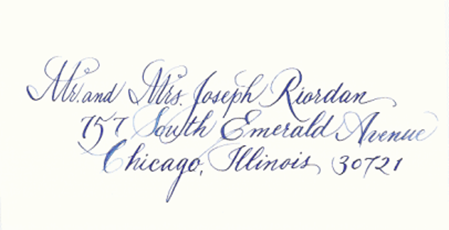 Mr. and Mrs. Joseph Riordan
757 South Emerald Avenue
Chicago, Illinois 30721